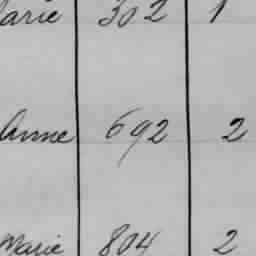 arie 302 1
Anne 692 2
Marie 804 2